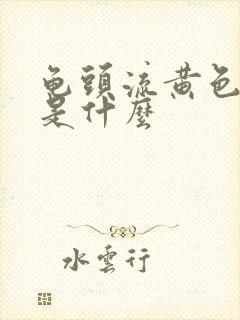 龟頭流黄色
是什麽
水雲行